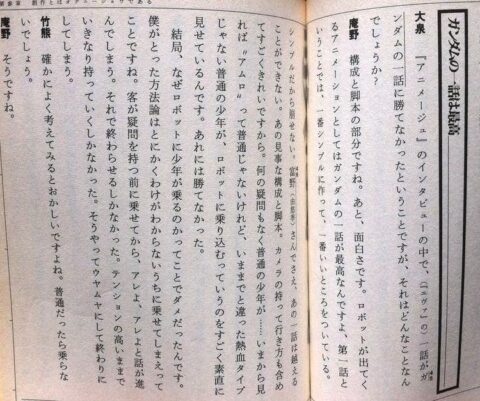 第参章　創作とはオナニーショウである
ガンダムの一話は最高
大泉　『アニメージュ』のインタビューの中で、(『エヴァ』の)一話がガ
ンダムの一話に勝てなかったということですが、それはどんなことなん
でしょうか?
庵野　構成と脚本の部分ですね。あと、面白さです。ロボットが出てく
るアニメーションとしてはガンダムの一話が最高なんですよ、第一話と
いうことでは、一番シンプルに作って、一番いいところをついている。
シンプルだから崩せない。富野(由悠季)さんでさえ、あの一話は越える
ことができない。あの見事な構成と脚本。カメラの持って行き方も含め
てすごくきれいですから。何の疑問もなく普通の少年が……いまから見
れば〝アムロ〟って普通じゃないけれど、いままでと違った熱血タイプ
じゃない普通の少年が、ロボットに乗り込むっていうのをすごく素直に
見せているんです。あれには勝てなかった。
結局、なぜロボットに少年が乗るのかってことでダメだったんです。
僕がとった方法論はとにかくわけがわからないうちに乗せてしまえって
ことですね。客が疑問を持つ前に乗せてから、アレよ、アレよと話が進
んでしまう。それで終わらせるしかなかった。テンションの高いままで
いきなり持っていくしかなかった。そうやってウヤムヤにして終わりに
してしまう。
竹熊　確かによく考えてみるとおかしいですよね。普通だったら乗らな
庵野　そうですね。